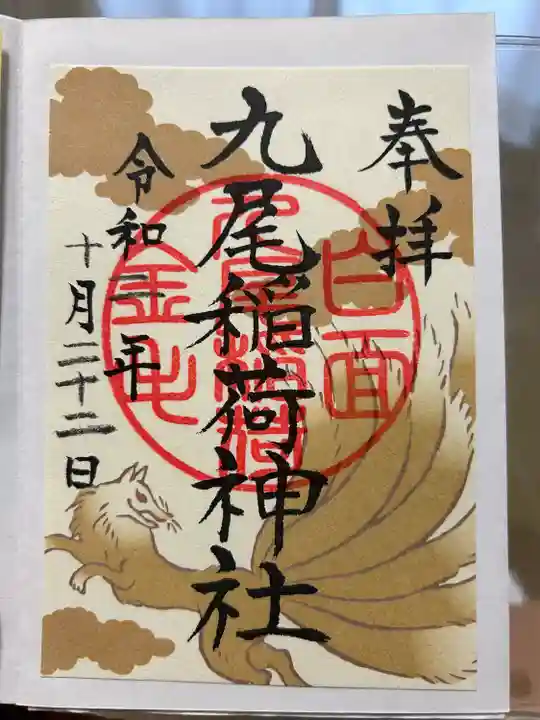 奉拝
白面
九尾稲荷神社
金毛
令和二年
十月二十二日